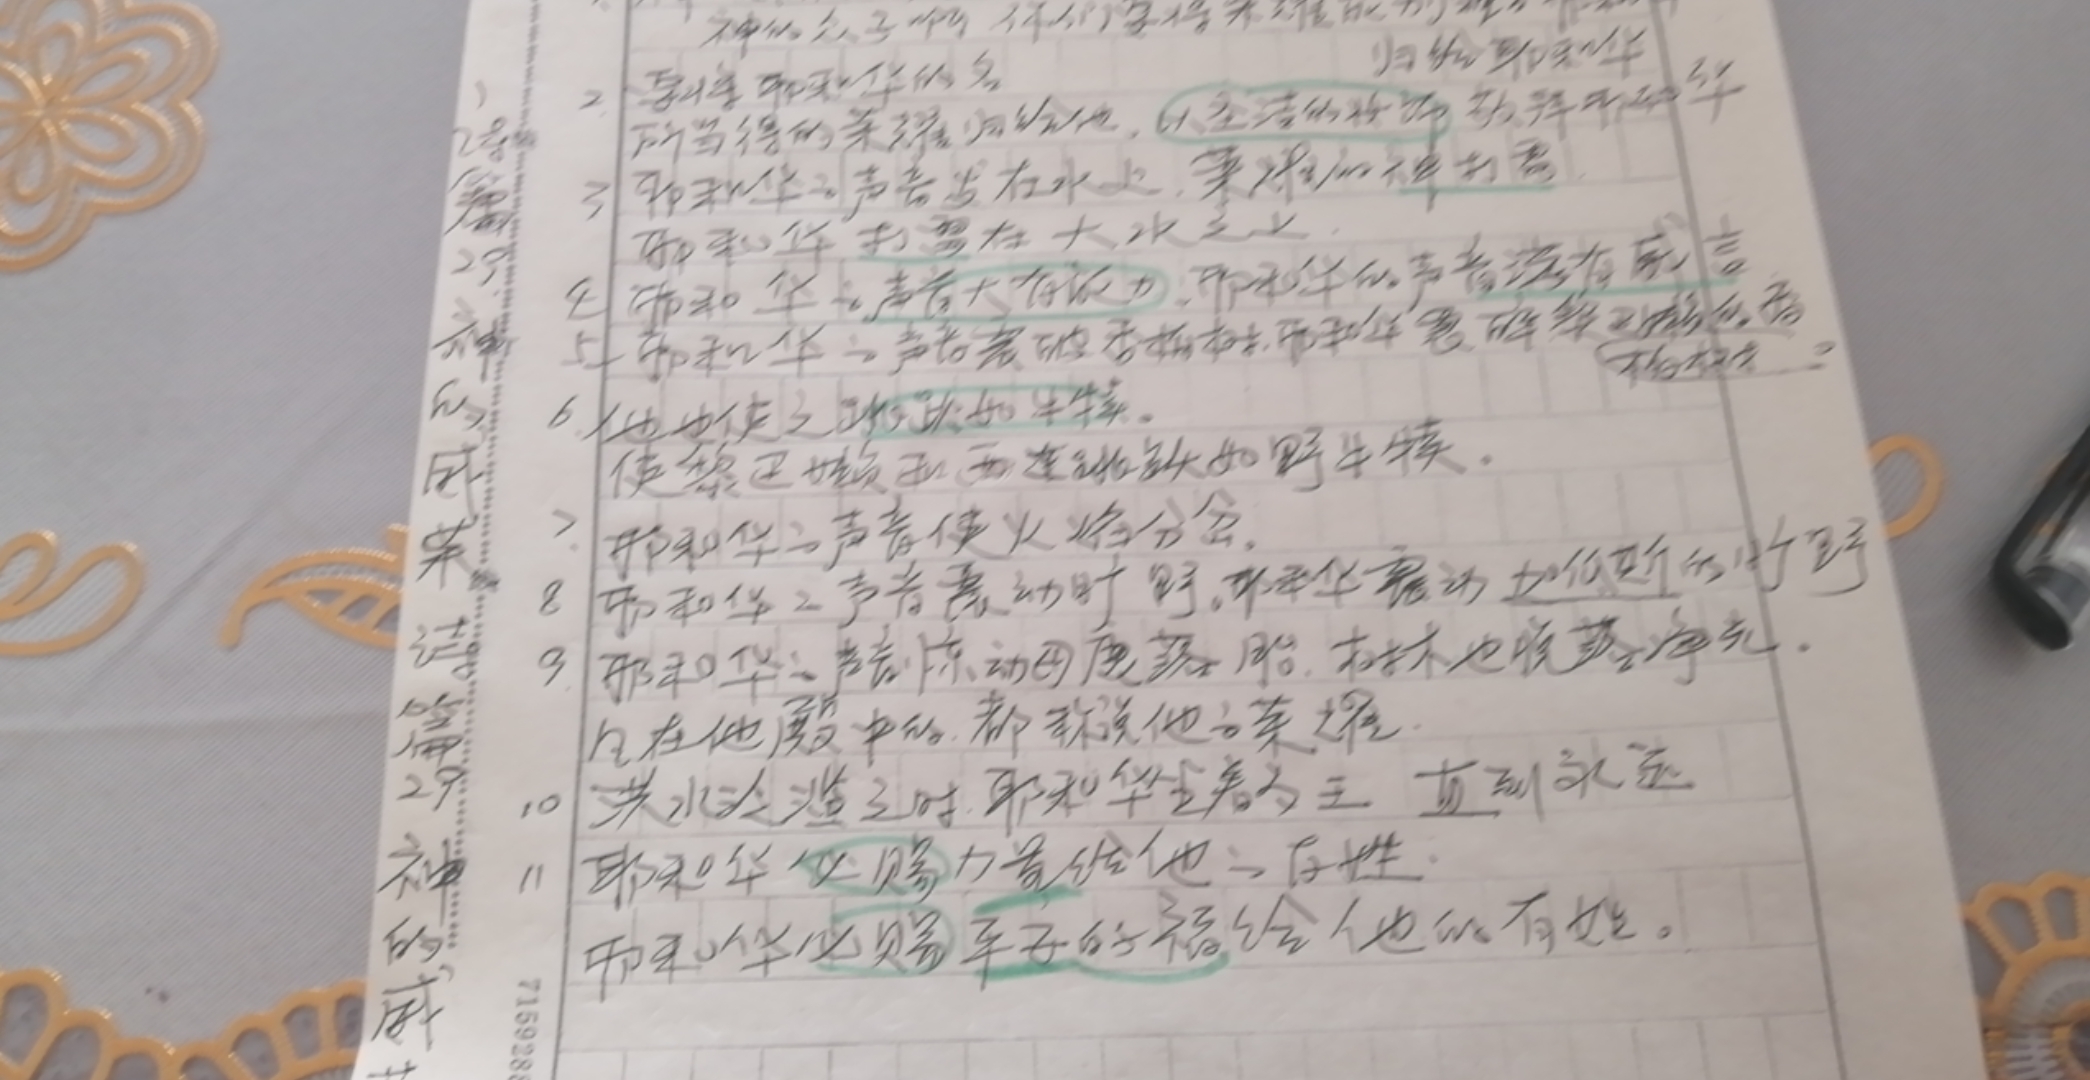 神的众子啊 你们要将荣耀
归给耶和华
2. 要将耶和华的名
所当得的荣耀归给他，以圣洁的妆饰 敬拜耶和华
3 耶和华的声音发在水上．荣耀的神打雷
耶和华打雷在大水之上．
4 耶和华的声音大有能力，耶和华的声音满有威言
5 耶和华的声音震破香柏树．耶和华震碎黎巴嫩的香
柏树
6. 他也使之跳跃如牛犊。
使黎巴嫩和西连跳跃如野牛犊．
7. 耶和华的声音使火焰分岔．
8 耶和华的声音震动旷野．耶和华震动加低斯的旷野
9. 耶和华的声音惊动母鹿落胎．树木也脱落净光．
凡在他殿中的．都称说他的荣耀．
10 洪水泛滥之时．耶和华坐着为王 直到永远
11 耶和华必赐力量给他的百姓．
耶和华必赐平安的福给他的百姓。
诗篇29 神的威
7159288